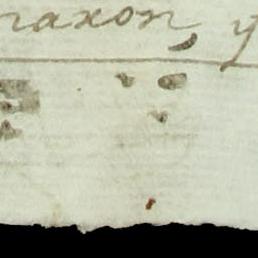 naxon, y